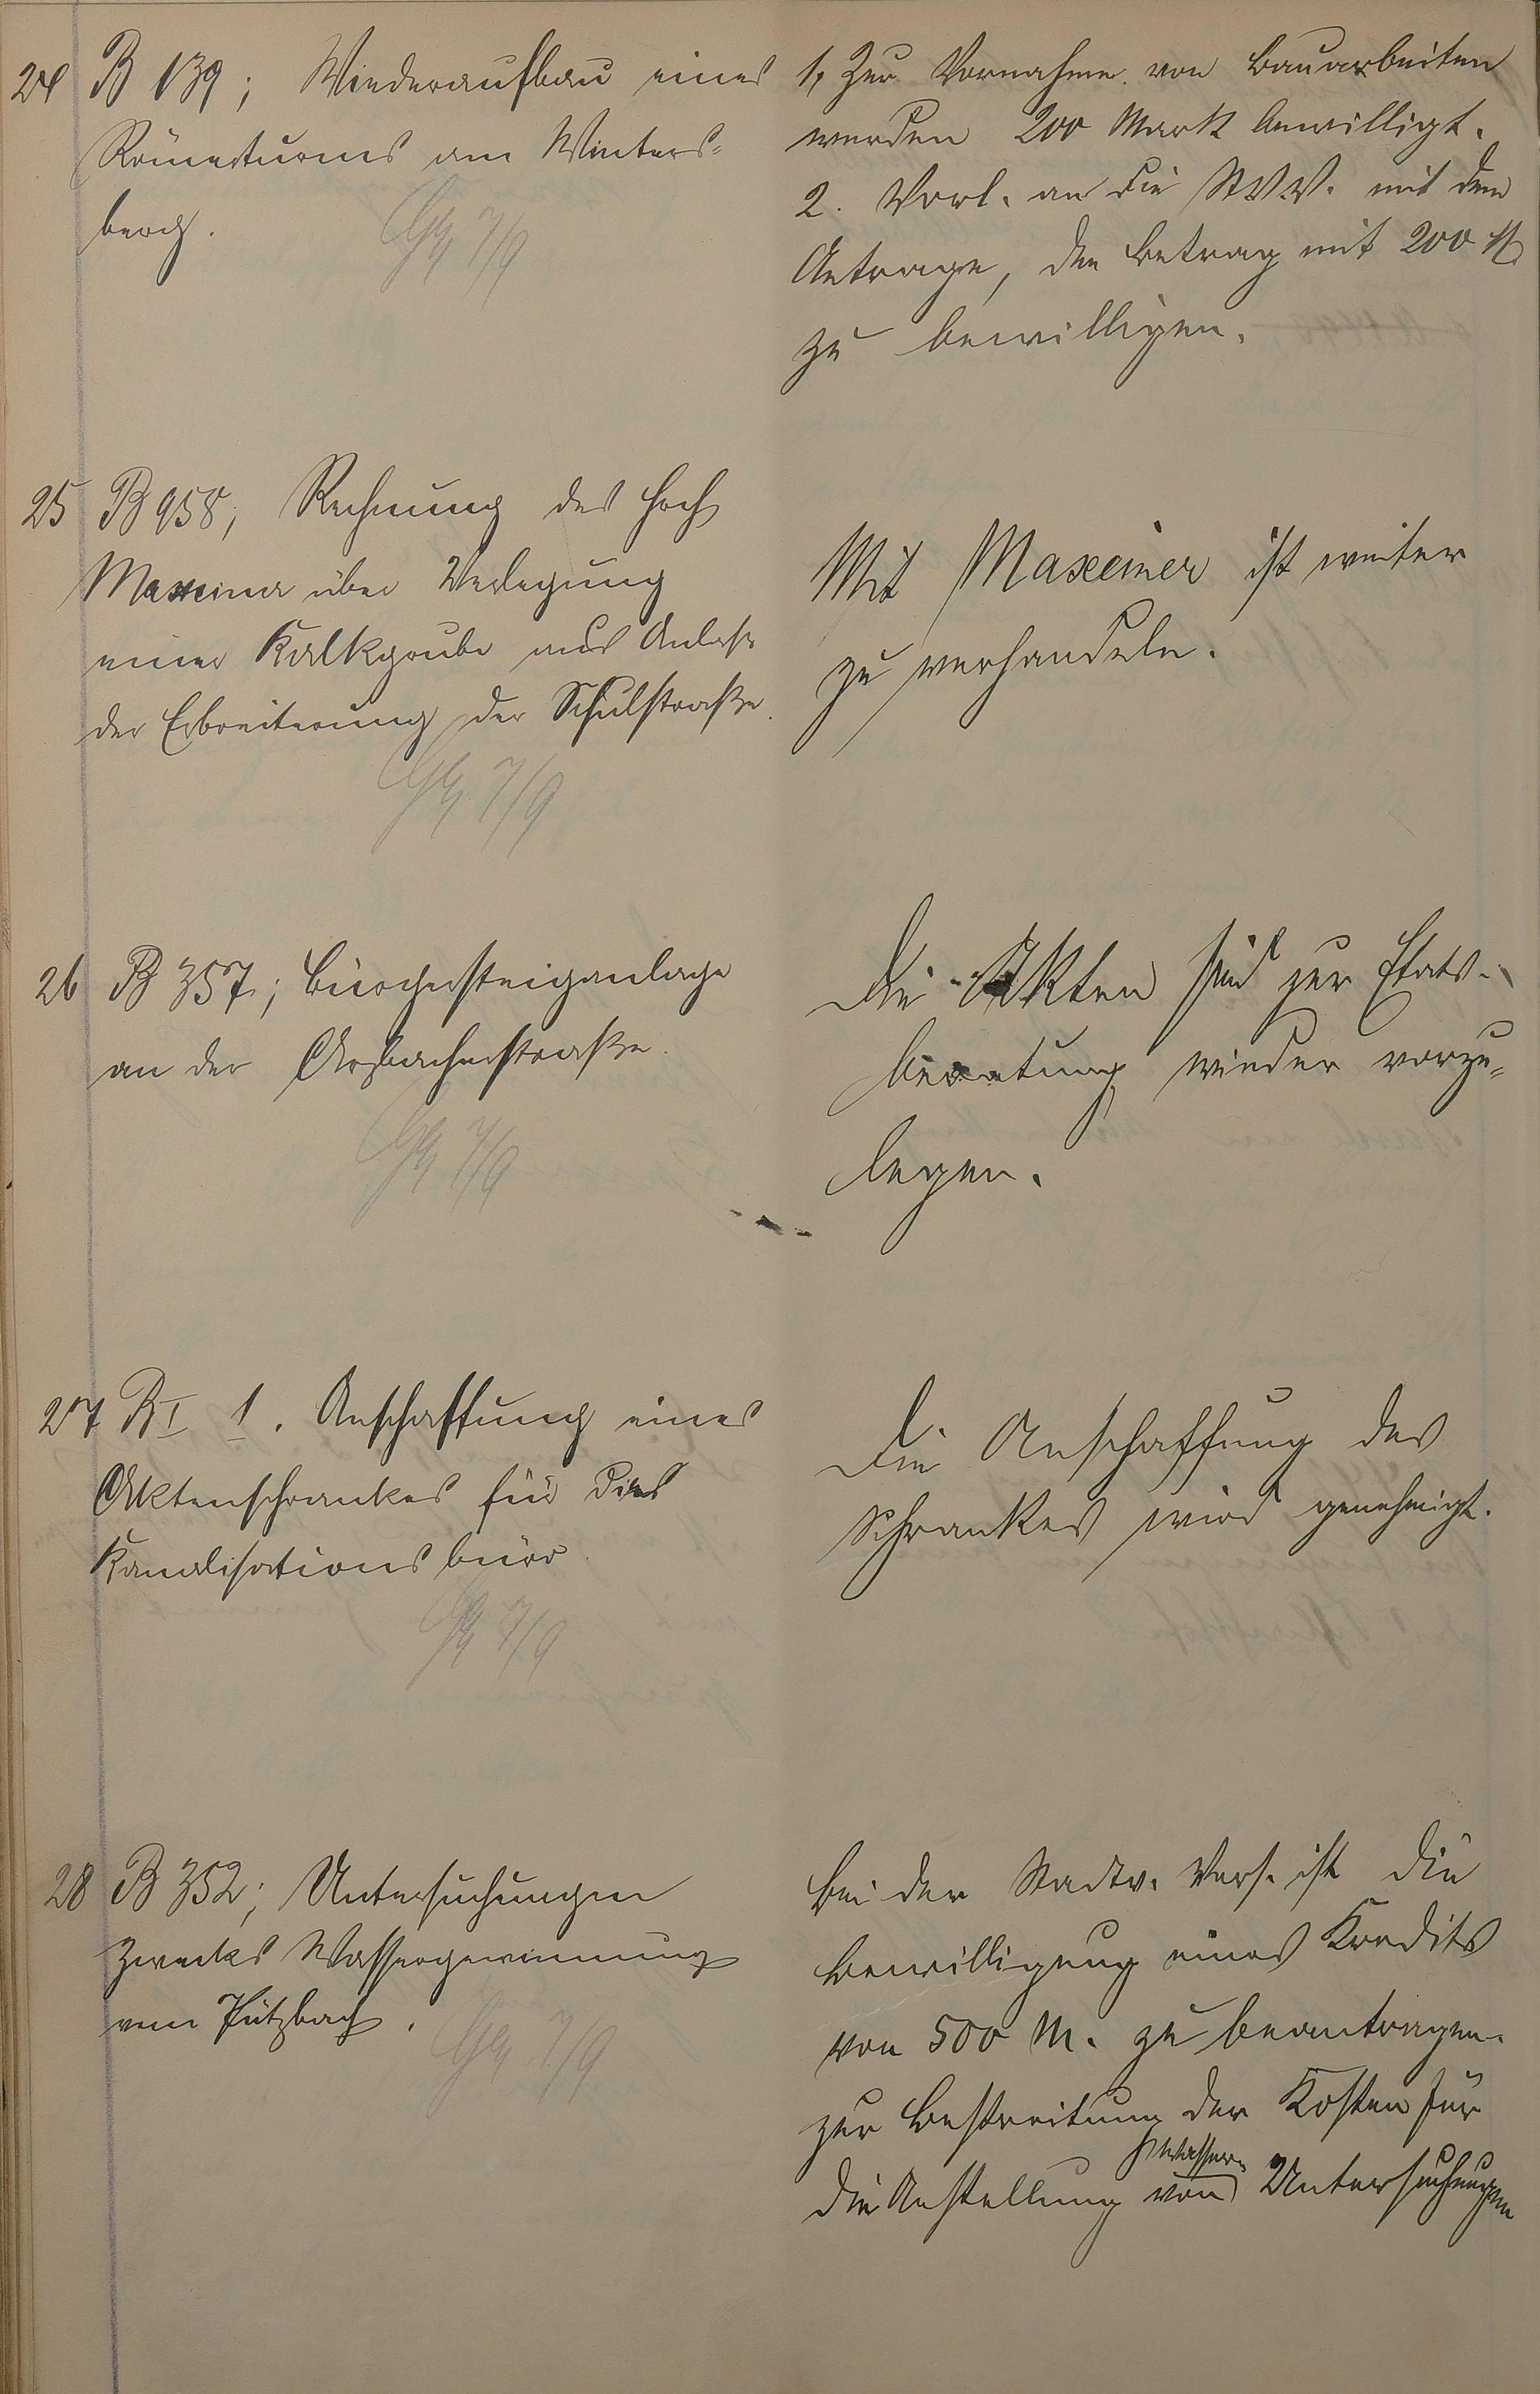 24 B 139; Wiederaufbau eines
Römerturms am Winters=
berg.
1, Zur Vornahme von Bauarbeiten
werden 200 Mark bewilligt.
2. Vorl. an die St.V.V. mit dem
Antrage, den Betrag mit 200 M
zu bewilligen.
25 B 958; Rechnung des Joh
Maxeiner über Verlegung
einer Kalkgrube aus Anlaß
der Erbreiterung der Schulstraße.
Mit Maxeiner ist weiter
zu verhandeln.
26 B 357; Bürgersteiganlage
an der Arzbacherstraße.
Die Akten sind zur Etats-
beratung wieder vorzu=
legen.
27 B I 1. Anschaffung eines
Aktenschrankes für das
Kanalisationsbüro.
Die Anschaffung des
Schrankes wird genehmigt.
28 B 352; Untersuchungen
zwecks Wassergewinnung
vom Pützbach.
Bei der Stadtv. Vers. ist die
Bewilligung eines Kredits
von 500 M. zu beantragen.
zur Bestreitung der Kosten für
Wasser-
die Anstellung von Untersuchungen